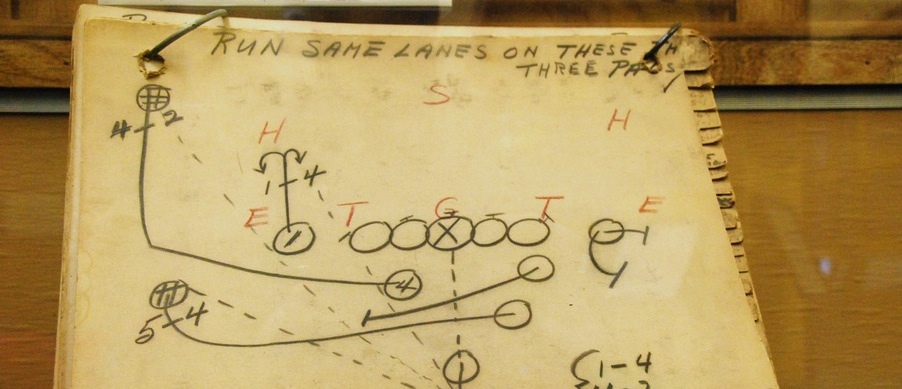 RUN SAME LANES ON THESE
THREE PASS
S
H H
4 2
1 4
E T G T E
1 X
4
5 4
1
1-4